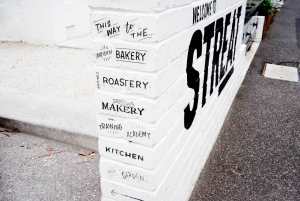 THIS...
WAY to THE...
ARTISAN BAKERY
ROASTERY
MAKERY
TRAINING ACADEMY
KITCHEN
GARDEN
WELCOME TO
STREAT